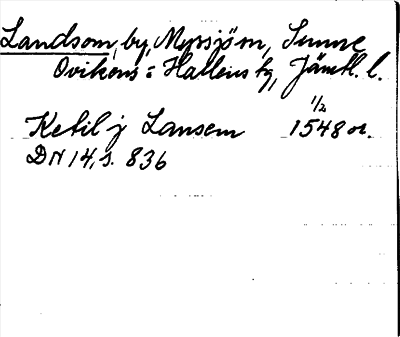 Landsom, by, Myrsjöm, Sunne
Ovikens = Hallens tg, Jämtl. l.
Ketil j Lansem 1/2 1548 or.
DN 14, s. 836